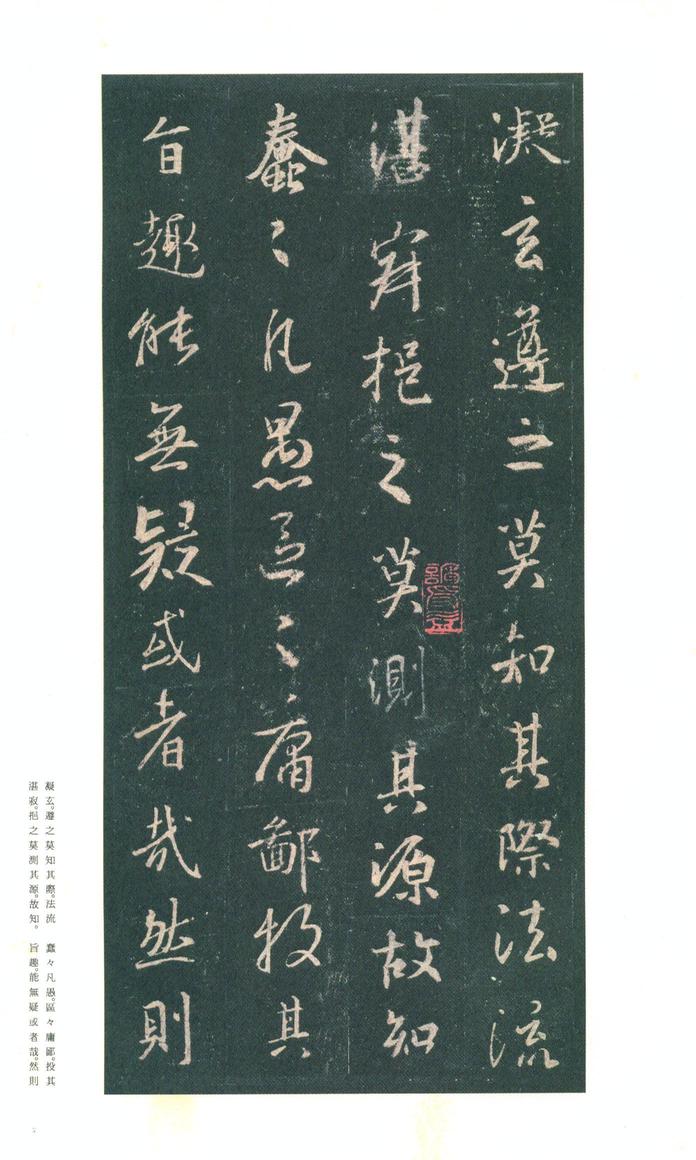 凝玄遵之莫知其際法流
湛寂挹之莫測其源故知
蠢々凡愚區々庸鄙投其
旨趣能無疑或者哉然則
凝玄。遵之莫知其際。法流
湛寂。挹之莫測其源。故知。
蠢々凡愚。區々庸鄙。投其
旨趣。能無疑或者哉。然則